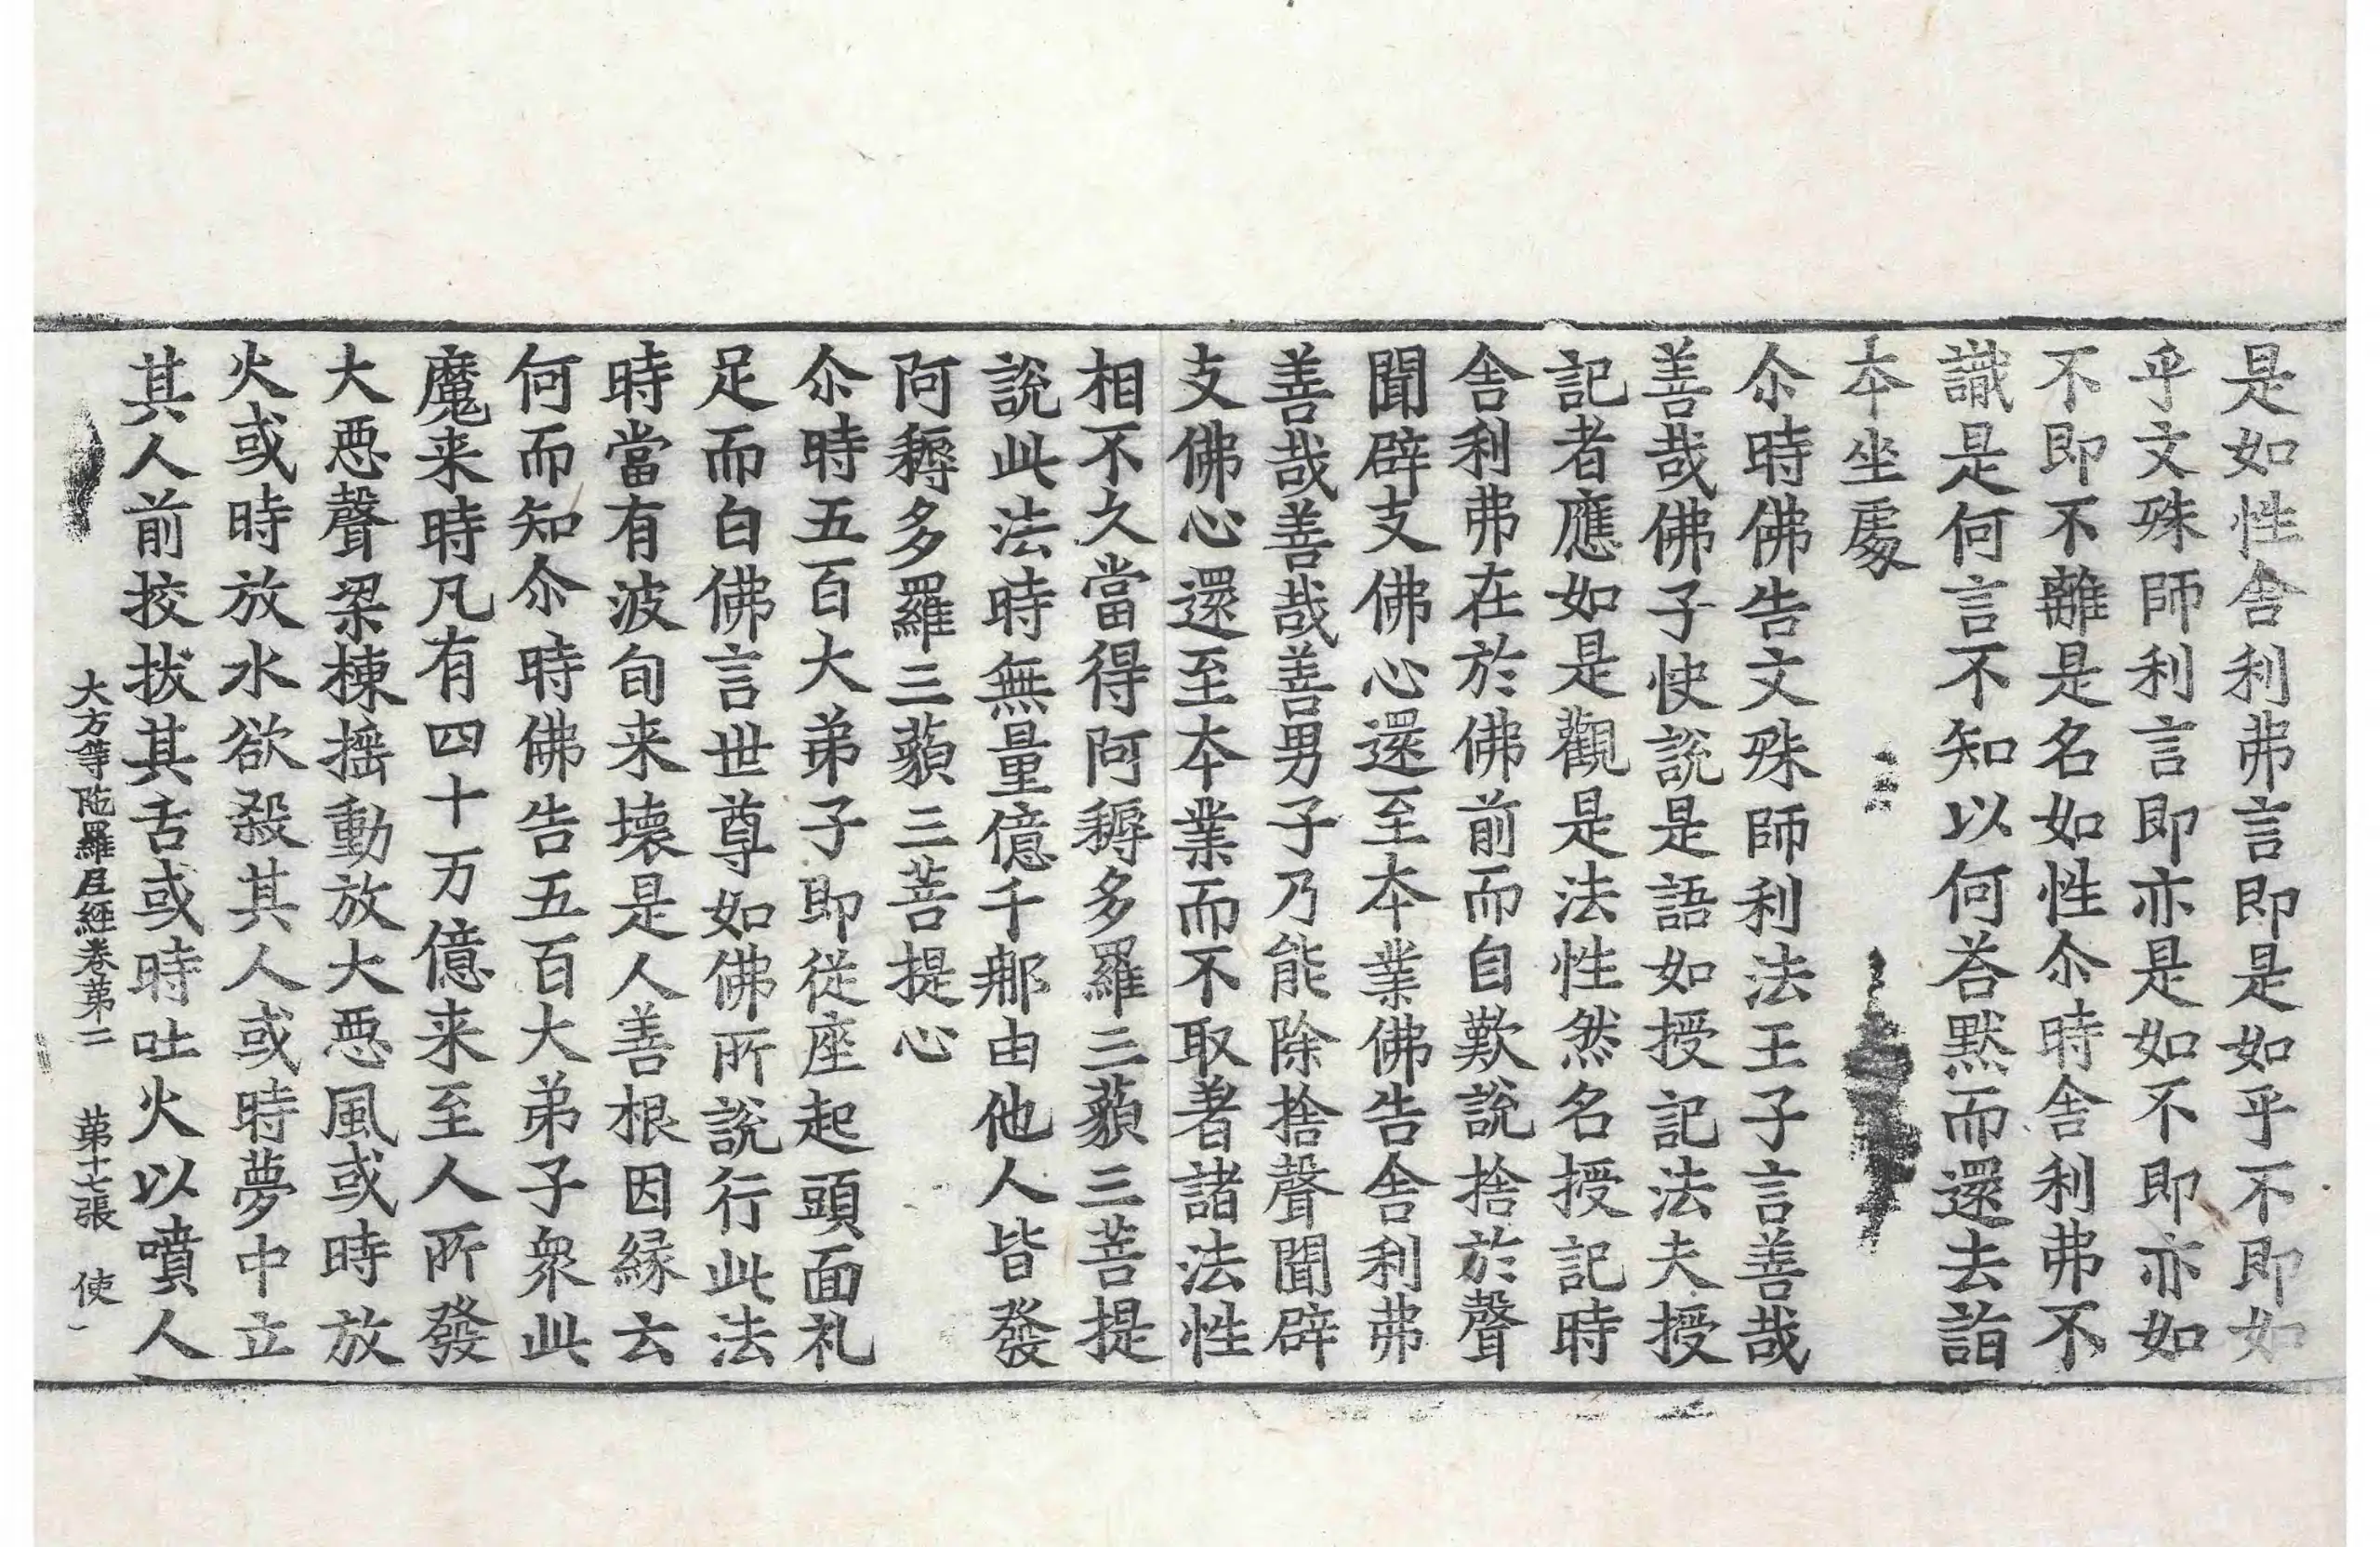 是如性舍利弗言即是如乎不即如
乎文殊師利言即亦是如不即亦如
不即不離是名如性尒時舍利弗不
識是何言不知以何荅默而還去詣
本坐處
尒時佛告文殊師利法王子言善哉
善哉佛子快說是語如授記法夫授
記者應如是觀是法性然名授記時
舍利弗在於佛前而自歎說捨於聲
聞辟支佛心還至本業佛告舍利弗
善哉善哉善男子乃能除捨聲聞辟
支佛心還至本業而不取著諸法性
相不久當得阿耨多羅三藐三菩提
說此法時無量億千那由他人皆發
阿耨多羅三藐三菩提心
尒時五百大弟子即從座起頭面礼
足而白佛言世尊如佛所說行此法
時當有波旬来壊是人善根因緣云
何而知尒時佛告五百大弟子衆此
魔来時凡有四十万億来至人所發
大惡聲梁棟揺動放大惡風或時放
火或時放水欲殺其人或時夢中立
其人前挍拔其舌或時吐火以噴人
大方等陁羅尼經卷第二 第十七張 使